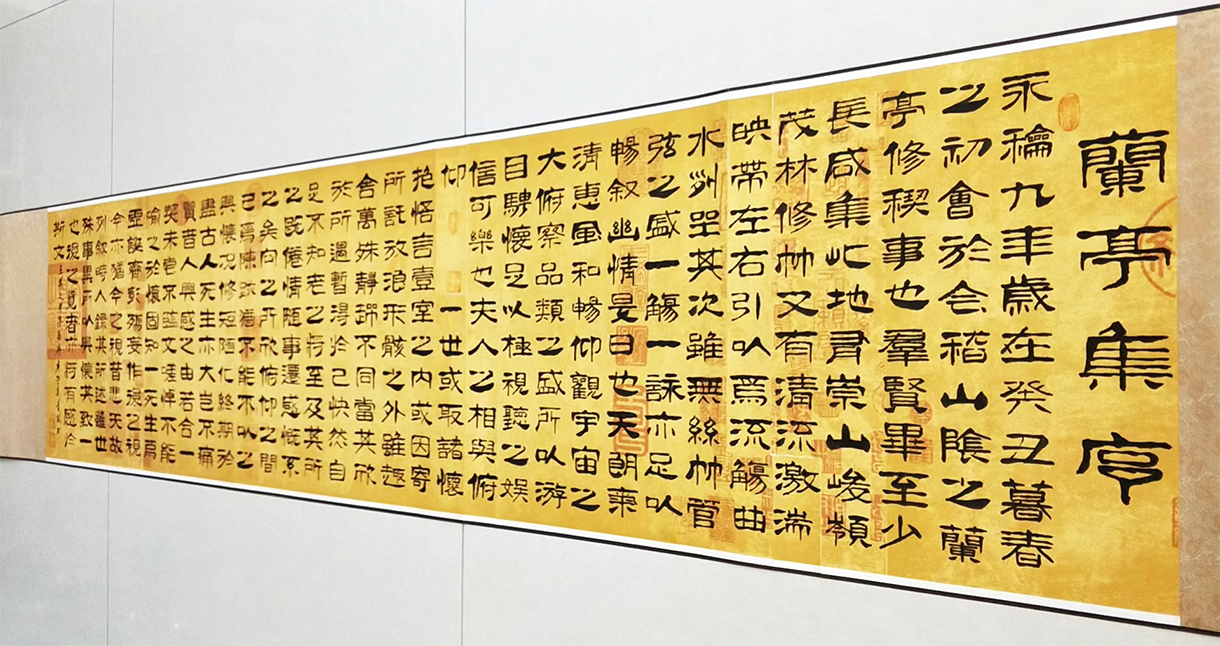 蘭亭集序
永龢九年歲在癸丑暮春
之初會於會稽山陰之蘭
亭修禊事也羣賢畢至少
長咸集此地有崇山峻領
茂林修竹又有清流激湍
映帶左右引以為流觴曲
水列坐其次雖無絲竹管
弦之盛一觴一詠亦足以
暢叙幽情是日也天朗氣
清惠風和暢仰觀宇宙之
大俯察品類之盛所以游
目騁懷足以極視聽之娛
信可樂也夫人之相與俯
仰一世或取諸懷
抱悟言壹室之內或因寄
所託放浪形骸之外雖趣
舍萬殊靜躁不同當其欣
於所遇暫得於己快然自
足不知老之將至及其所
之既倦情隨事遷感慨系
之矣向之所欣俯仰之間
已為陳跡猶不能不以之
興懷況修短隨化終期於
盡古人死生亦大豈不痛
覽昔人興感之由若合一
契未嘗不臨文嗟悼不能
喻之於懷固知一死生為
虛誕齊彭殤妄作後之視
今亦猶今之視昔悲夫故
列敘時人錄其所述雖世
殊事異所以興懷其致一
也後之覽者亦將有感於
斯文